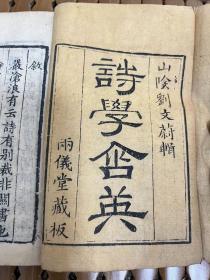 山陰劉文蔚輯
詩學含英
兩儀堂藏板
敘
嚴滄浪有云詩有別裁非關書也